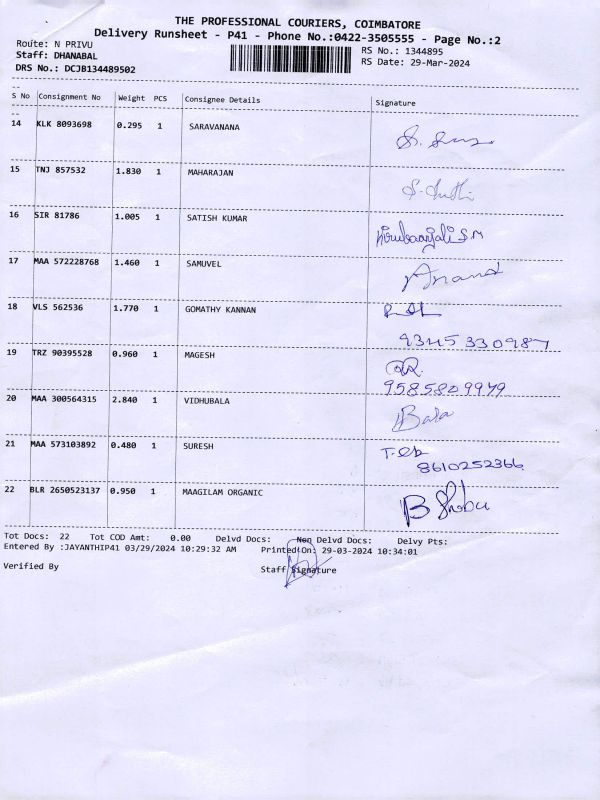 THE PROFESSIONAL COURIERS, COIMBATORE
Delivery Runsheet - P41 - Phone No.:0422-3505555 - Page No.:2
Route: N PRIVU RS No.: 1344895
Staff: DHANABAL RS Date: 29-Mar-2024
DRS No.: DCJB134489502
S No Consignment No Weight PCS Consignee Details Signature
14 KLK 8093698 0.295 1 SARAVANANA
15 TNJ 857532 1.830 1 MAHARAJAN
16 SIR 81786 1.005 1 SATISH KUMAR
17 MAA 572228768 1.460 1 SAMUVEL Anand
18 VLS 562536 1.770 1 GOMATHY KANNAN
9345330987
19 TRZ 90395528 0.960 1 MAGESH
9585809979
20 MAA 300564315 2.840 1 VIDHUBALA Bala
21 MAA 573103892 0.480 1 SURESH
8610252366
22 BLR 2650523137 0.950 1 MAAGILAM ORGANIC
Tot Docs: 22 Tot COD Amt: 0.00 Delvd Docs: Non Delvd Docs: Delvy Pts:
Entered By :JAYANTHIP41 03/29/2024 10:29:32 AM Printed On: 29-03-2024 10:34:01
Verified By Staff Signature